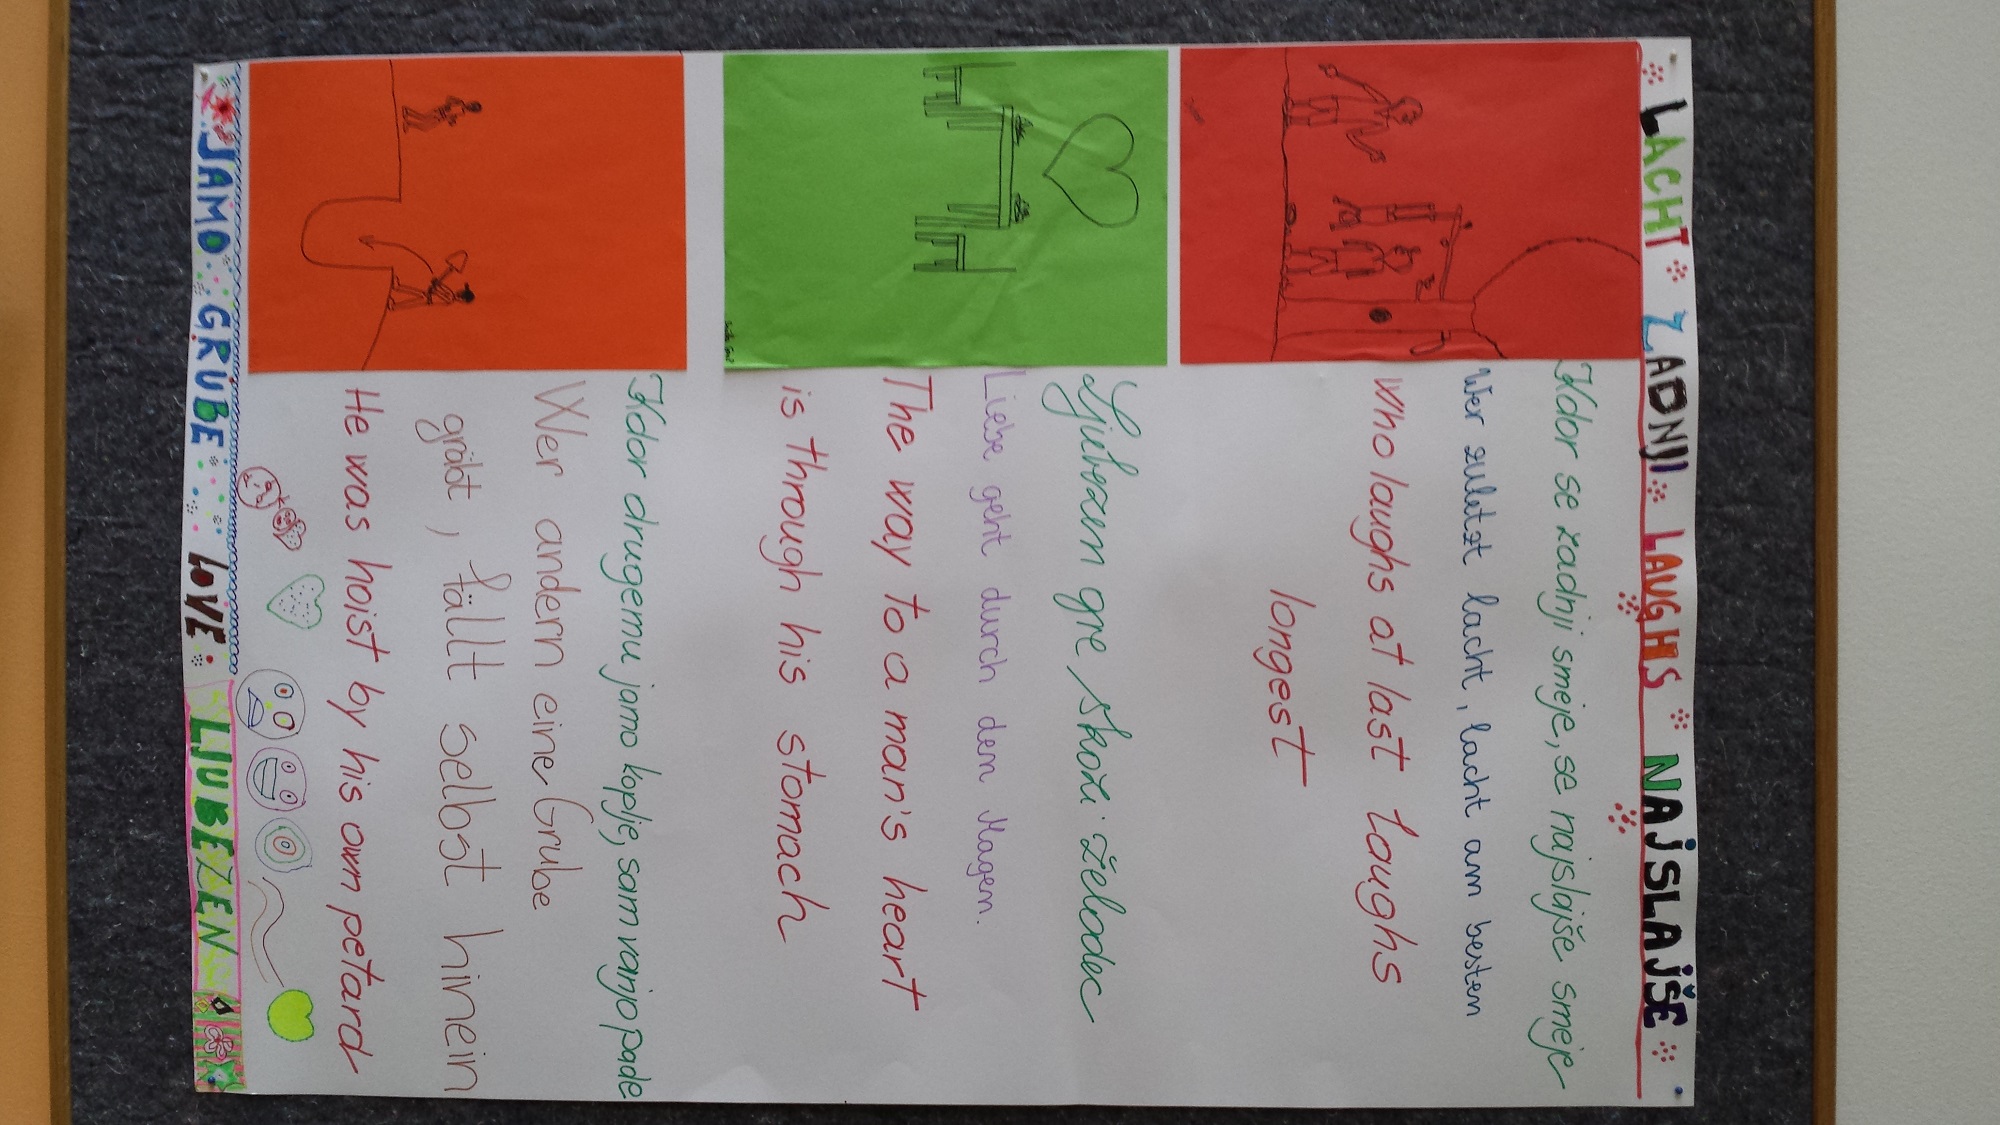 LACHT ZADNJI LAUGHS NAJSLAJŠE
Kdor se zadnji smeje, se najslajše smeje
Wer zuletzt lacht, lacht am besten
who laughs at last laughs
longest
Ljubezen gre skozi želodec
Liebe geht durch den Magen.
The way to a man's heart
is through his stomach
Kdor drugemu jamo koplje, sam vanjo pade
Wer andern eine Grube
gräbt, fällt selbst hinein
He was hoist by his own petard
JAMO GRUBE LOVE LJUBEZEN